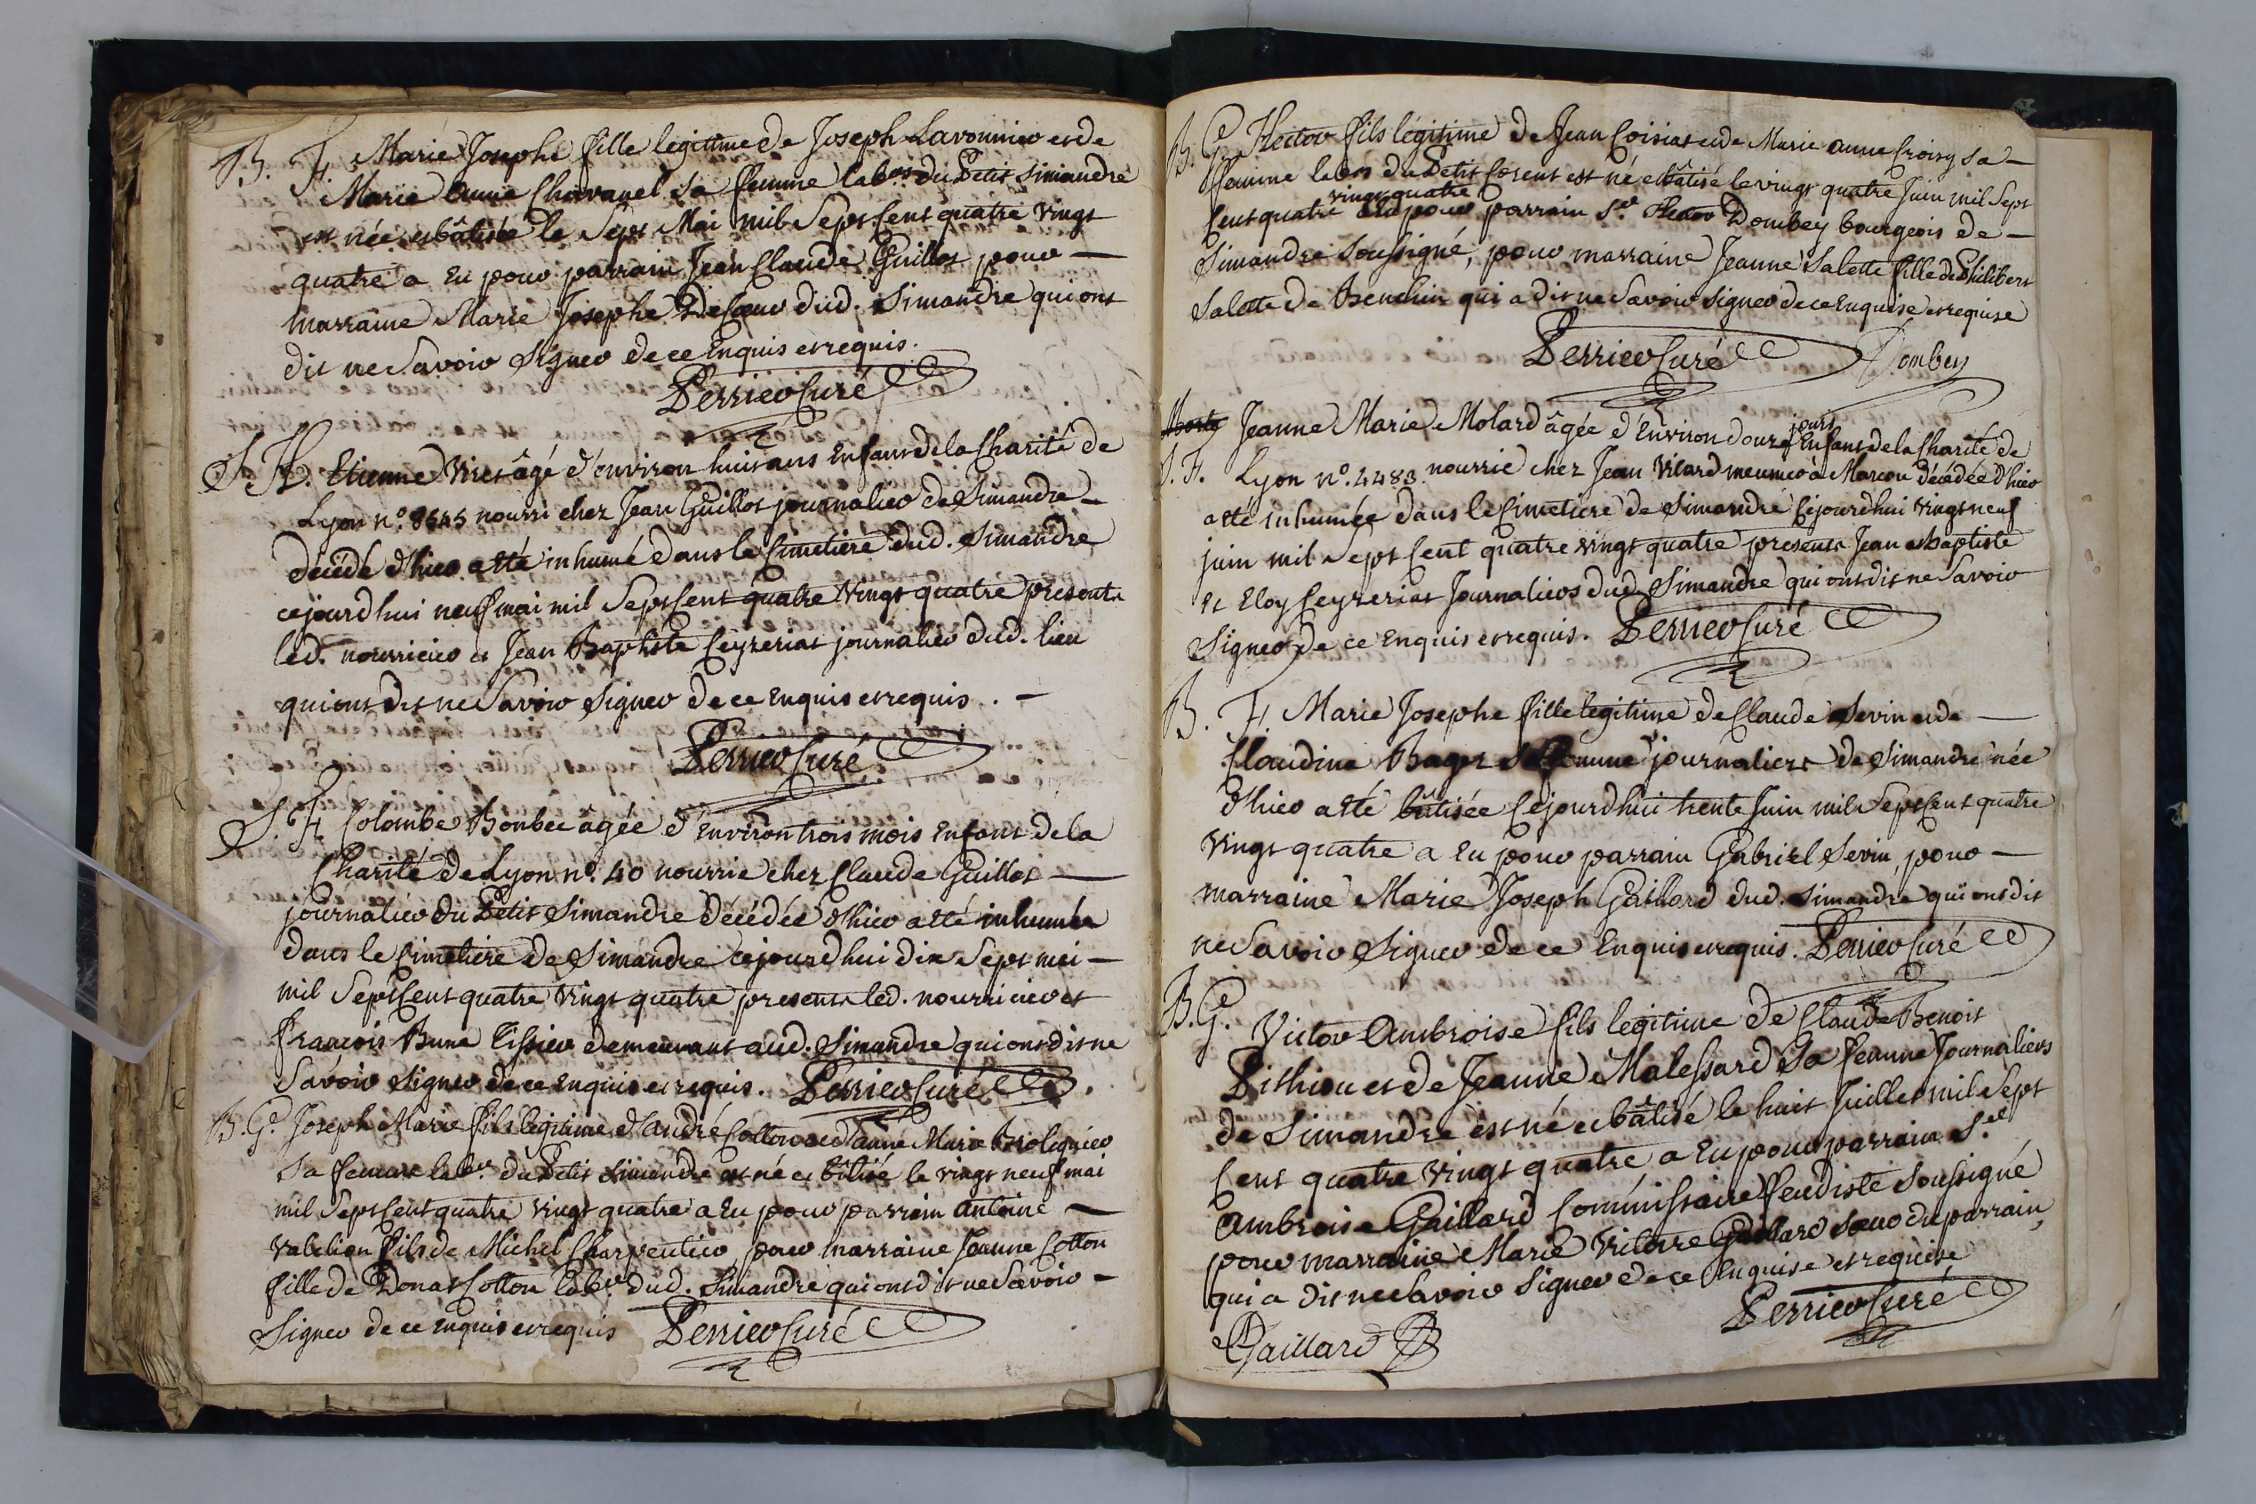 B. F. Marie Josephe fille legitime de Joseph Lavonnier et de
Marie Anne Chavanel sa femme labrs du Petit Simandre
est née et bâtisée le Sept Mai mil Sept Cent quatre vingt
quatre a Eu pour parrain Jean Claude Guillot pour —
marraine Marie Josephe DeCoeur dud. Simandre qui ont
dit ne Savoir Signer de ce Enquis et requis.
Perrier Curé
S. H. Etienne Viret âgé d'environ huit ans Enfant de la Charité de
Lyon n.o 8545 nourri chez Jean Guillot journalier de Simandre —
decédé d'hier a été inhumé dans le Cimetiere dud. Simandre
cejourdhui neuf mai mil Sept Cent quatre Vingt quatre presents
led. nourricier et Jean Baptiste Ceyzeriat journalier dud. lieu
qui ont dit ne Savoir Signer de ce Enquis et requis. —
Perrier Curé
S. F. Colombe Bonbec âgée d'Environ trois mois Enfant de la
Charité de Lyon n.o 40 nourrie chez Claude Guillot —
journalier du Petit Simandre décédée d'hier a été inhumée
dans le Cimetiere de Simandre cejourdhui dix Sept mai —
mil Sept Cent quatre Vingt quatre presents led. nourricier et
François Bune Tissier demeurant aud. Simandre qui ont dit ne
Savoir Signer de ce Enquis et requis. Perrier Curé.
B. G. Joseph Marie fils légitime d'andré Cotton et d'anne Marie
Sa femme labr. du Petit Simandre est né et bâtisé le vingt neuf mai
mil Sept Cent quatre Vingt quatre a Eu pour parrain antoine —
fils de Michel Charpentier, pour marraine Jeanne Cotton
fille de Donat Cotton labr. dud. Simandre qui ont dit ne Savoir —
Signer de ce Enquis et requis Perrier Curé
B. G. Hector fils légitime de Jean Coisiat et de Marie anne Croisy sa —
femme labrs du Petit Corent est né et bâtisé le vingt quatre Juin mil Sept
Cent quatre vingt quatre a Eu pour parrain Sr. Hector Dombey bourgeois de —
Simandre Soussigné, pour marraine Jeanne Salette fille de Philibert
Salette de qui a dit ne Savoir Signer de ce Enquise et requise
Perrier Curé Dombey
Morte Jeanne Marie Molard âgée d'Environ douze jours Enfant de la Charité de
S. F. Lyon n.o 4483 nourrie chez Jean Vicard meunier à décédée d'hier
a été inhumée dans le Cimetiere de Simandre Cejourdhui vingt neuf
juin mil Sept Cent quatre vingt quatre presents Jean Baptiste
et Eloy Ceyzeriat Journaliers dud. Simandre qui ont dit ne Savoir
Signer de ce Enquis et requis. Perrier Curé
B. F. Marie Josephe fille legitime de Claude Sevin et de —
Claudine Sa femme journaliers de Simandre née
d'hier a été bâtisée Cejourdhui trente Juin mil Sept Cent quatre
Vingt quatre a Eu pour parrain Gabriel Sevin, pour —
marraine Marie Joseph Gaillard dud. Simandre qui ont dit
ne Savoir Signer de ce Enquis et requis. Perrier Curé
B. G. Victor Ambroise fils legitime de Claude Benoit
Pithiou et de Jeanne Malessard Sa femme Journaliers
de Simandre est né et bâtisé le huit Juillet mil Sept
Cent quatre Vingt quatre a Eu pour parrain Sr.
Ambroise Gaillard Commissaire feudiste Soussigné
pour marraine Marie Victoire Gaillard Soeur du parrain,
qui a dit ne Savoir Signer de ce Enquise et requise
Perrier Curé
Gaillard